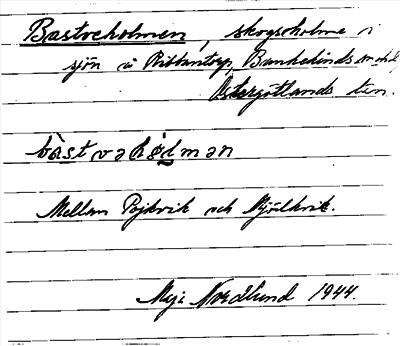 Bastveholmen, skogsholme i
sjön v Ribbantorp, Bankekinds sn o hd,
Östergötlands län.
bàstvəhədmən
Mellan Pojkvik och Mjölkvik.
Maj: Nordlund 1944.